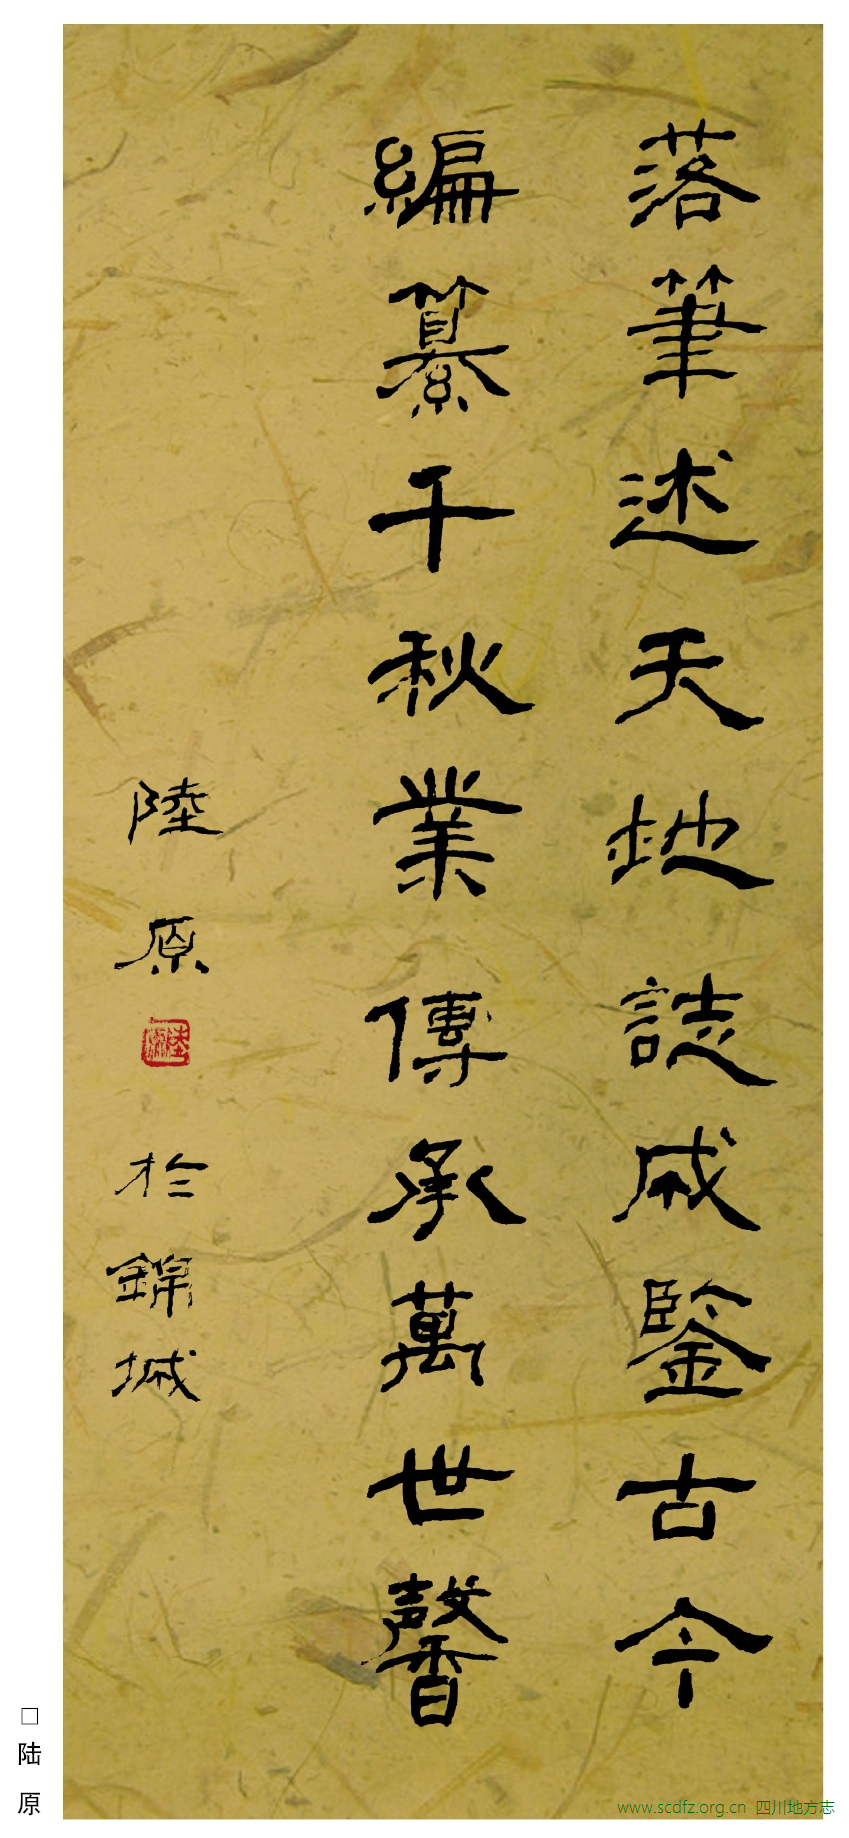 落筆述天地誌成鑒古今
編纂千秋業傳承萬世馨
陸原
陸原
於錦城
□陆原
www.scdfz.org.cn 四川地方志